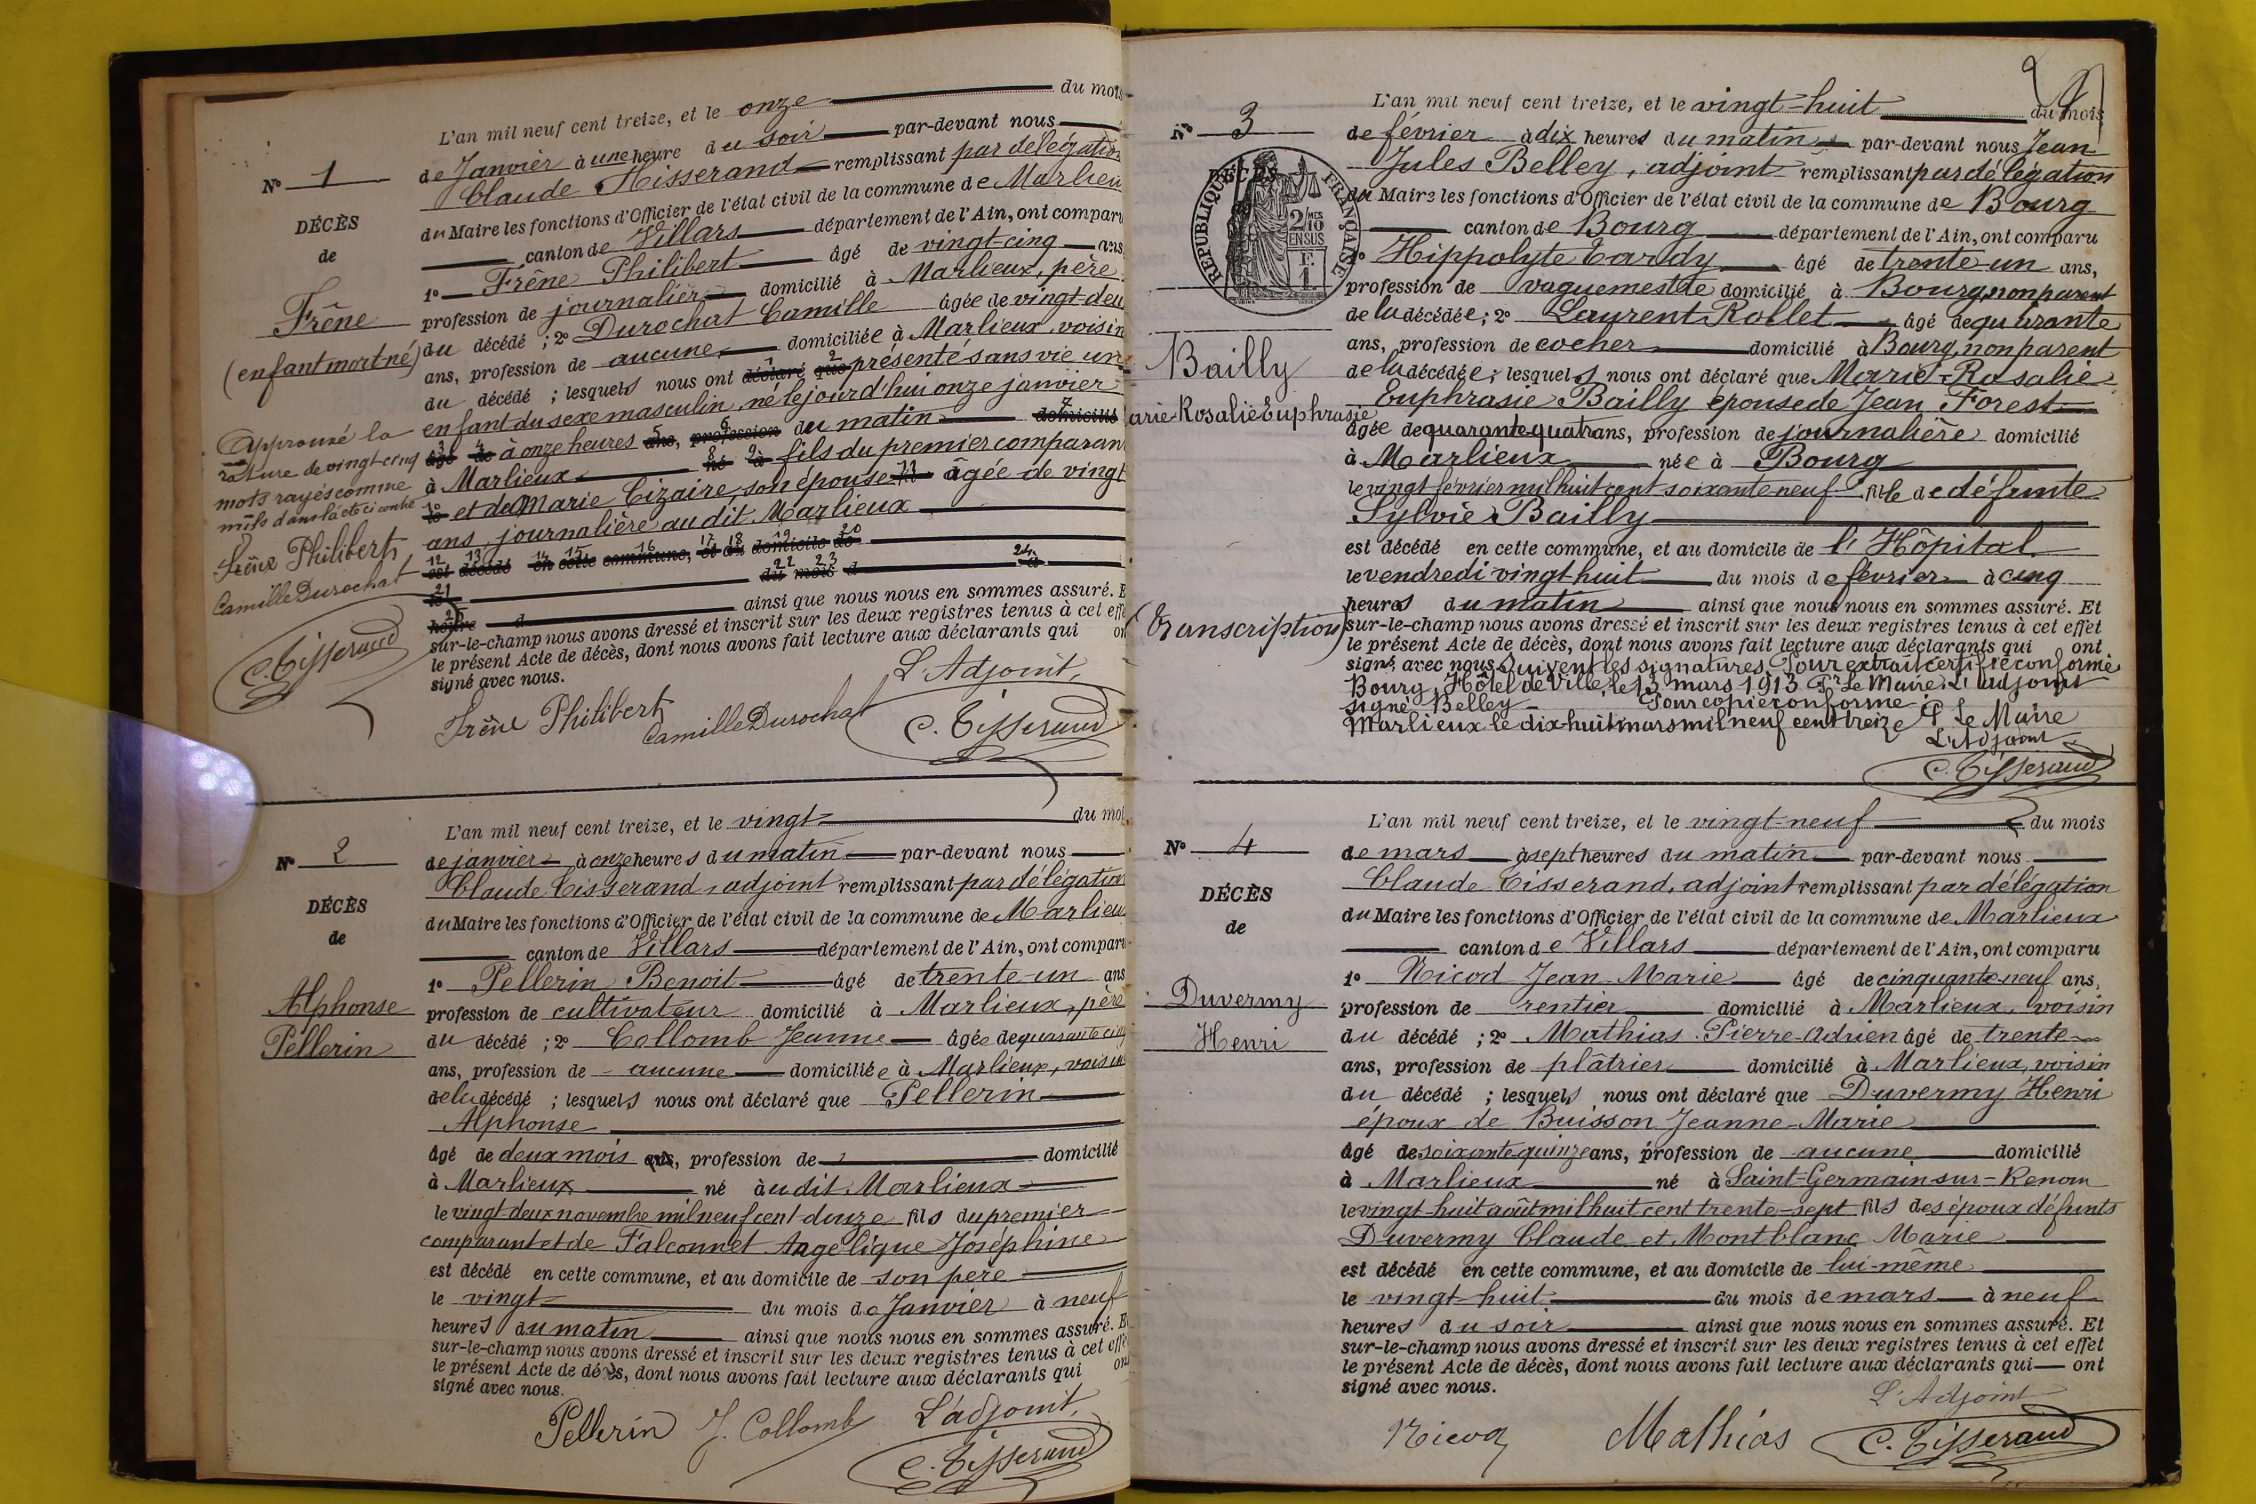 L'an mil neuf cent treize, et le onze du mois
de Janvier à une heure du soir par-devant nous
Claude Tisserand remplissant par délégation
du Maire les fonctions d'Officier de l'état civil de la commune de Marlieu
canton de Villars département de l'Ain, ont comparu
1º Frêne Philibert âgé de vingt-cinq ans
profession de journalier domicilié à Marlieux, père
du décédé ; 2º Durochat Camille âgée de vingt-deu
ans, profession de aucune domiciliée à Marlieux, voisin
du décédé ; lesquels nous ont déclaré que présenté sans vie un
enfant du sexe masculin, né le jourd'hui onze janvier
âgé de à onze heures ans, profession du matin domicilié
à Marlieux né à fils du premier comparan
le et de Marie Cizaire, son épouse âgée de vingt
ans, journalière au dit Marlieux
est décédé en cette commune, et au domicile de
le du mois d à
heure d ainsi que nous nous en sommes assuré. E
sur-le-champ nous avons dressé et inscrit sur les deux registres tenus à cet effe
le présent Acte de décès, dont nous avons fait lecture aux déclarants qui on
signé avec nous.
L'Adjoint,
Frêne Philibert Camille Durochat C. Tisserand
Nº 1
DÉCÈS
de
Frêne
(enfant mort né)
Approuvé la
rature de vingt-cinq
mots rayés comme
nuls dans l'acte ci contre
Frêne Philibert
Camille Durochat
C. Tisserand
L'an mil neuf cent treize, et le vingt du moi
de janvier à onze heures du matin par-devant nous
Claude Tisserand, adjoint remplissant par délégation
du Maire les fonctions d'Officier de l'état civil de la commune de Marlieu
canton de Villars département de l'Ain, ont comparu
1º Pellerin Benoit âgé de trente-un ans
profession de cultivateur domicilié à Marlieux, père
du décédé ; 2º Collomb Jeanne âgée de quarante cinq
ans, profession de aucune domiciliée à Marlieux, voisine
de lu décédé ; lesquels nous ont déclaré que Pellerin
Alphonse
âgé de deux mois ans, profession de domicilié
à Marlieux né à udit Marlieux
le vingt-deux novembre mil neuf cent douze fils du premier
comparant et de Falconnet Angelique Joséphine
est décédé en cette commune, et au domicile de son père
le vingt du mois de Janvier à neuf
heures du matin ainsi que nous nous en sommes assuré. E
sur-le-champ nous avons dressé et inscrit sur les deux registres tenus à cet effe
le présent Acte de décès, dont nous avons fait lecture aux déclarants qui on
signé avec nous.
Pellerin J. Collomb L'adjoint,
C. Tisserand
Nº 2
DÉCÈS
de
Alphonse
Pellerin
2
L'an mil neuf cent treize, et le vingt-huit du mois
de février à dix heures du matin par-devant nous Jean
Jules Belley, adjoint remplissant par délégation
du Maire les fonctions d'Officier de l'état civil de la commune de Bourg
canton de Bourg département de l'Ain, ont comparu
1º Hippolyte Tardy âgé de trente-un ans,
profession de vaguemestre domicilié à Bourg, non parent
de la décédée ; 2º Laurent Rollet âgé de quarante
ans, profession de cocher domicilié à Bourg, non parent
de la décédée ; lesquels nous ont déclaré que Marie-Rosalie
Euphrasie Bailly épouse de Jean Forest
âgée de quarante quatre ans, profession de journalière domicilié
à Marlieux née à Bourg
le vingt février mil huit cent soixante-neuf fille de défunte
Sylvie Bailly
est décédé en cette commune, et au domicile de l'Hôpital
le vendredi vingt huit du mois de février à cinq
heures du matin ainsi que nous nous en sommes assuré. Et
sur-le-champ nous avons dressé et inscrit sur les deux registres tenus à cet effet
le présent Acte de décès, dont nous avons fait lecture aux déclarants qui ont
signé avec nous. Suivent les signatures. Pour extrait certifié conforme
Bourg, Hôtel de Ville, le 13 mars 1913 Pr Le Maire, L'adjoint
signé Belley Pour copie conforme
Marlieux le dix-huit mars mil neuf cent treize P. Le Maire
L'Adjoint
C. Tisserand
Nº 3
DÉCÈS
RÉPUBLIQUE FRANÇAISE
2/10 MES
EN SUS
F.
1
Bailly
arie-Rosalie Euphrasie
(Transcription)
L'an mil neuf cent treize, et le vingt-neuf du mois
de mars à sept heures du matin par-devant nous
Claude Tisserand, adjoint remplissant par délégation
du Maire les fonctions d'Officier de l'état civil de la commune de Marlieux
canton de Villars département de l'Ain, ont comparu
1º Nicod Jean-Marie âgé de cinquante-neuf ans,
profession de rentier domicilié à Marlieux, voisin
du décédé ; 2º Mathias Pierre-Adrien âgé de trente
ans, profession de plâtrier domicilié à Marlieux, voisin
du décédé ; lesquels nous ont déclaré que Duvermy Henri
époux de Buisson Jeanne-Marie
âgé de soixante quinze ans, profession de aucune domicilié
à Marlieux né à Saint-Germain-sur-Renom
le vingt-huit août mil huit cent trente-sept fils des époux défunts
Duvermy Claude et Montblanc Marie
est décédé en cette commune, et au domicile de lui-même
le vingt-huit du mois de mars à neuf
heures du soir ainsi que nous nous en sommes assuré. Et
sur-le-champ nous avons dressé et inscrit sur les deux registres tenus à cet effet
le présent Acte de décès, dont nous avons fait lecture aux déclarants qui ont
signé avec nous.
L'Adjoint
Nicod Mathias C. Tisserand
Nº 4
DÉCÈS
de
Duvermy
Henri